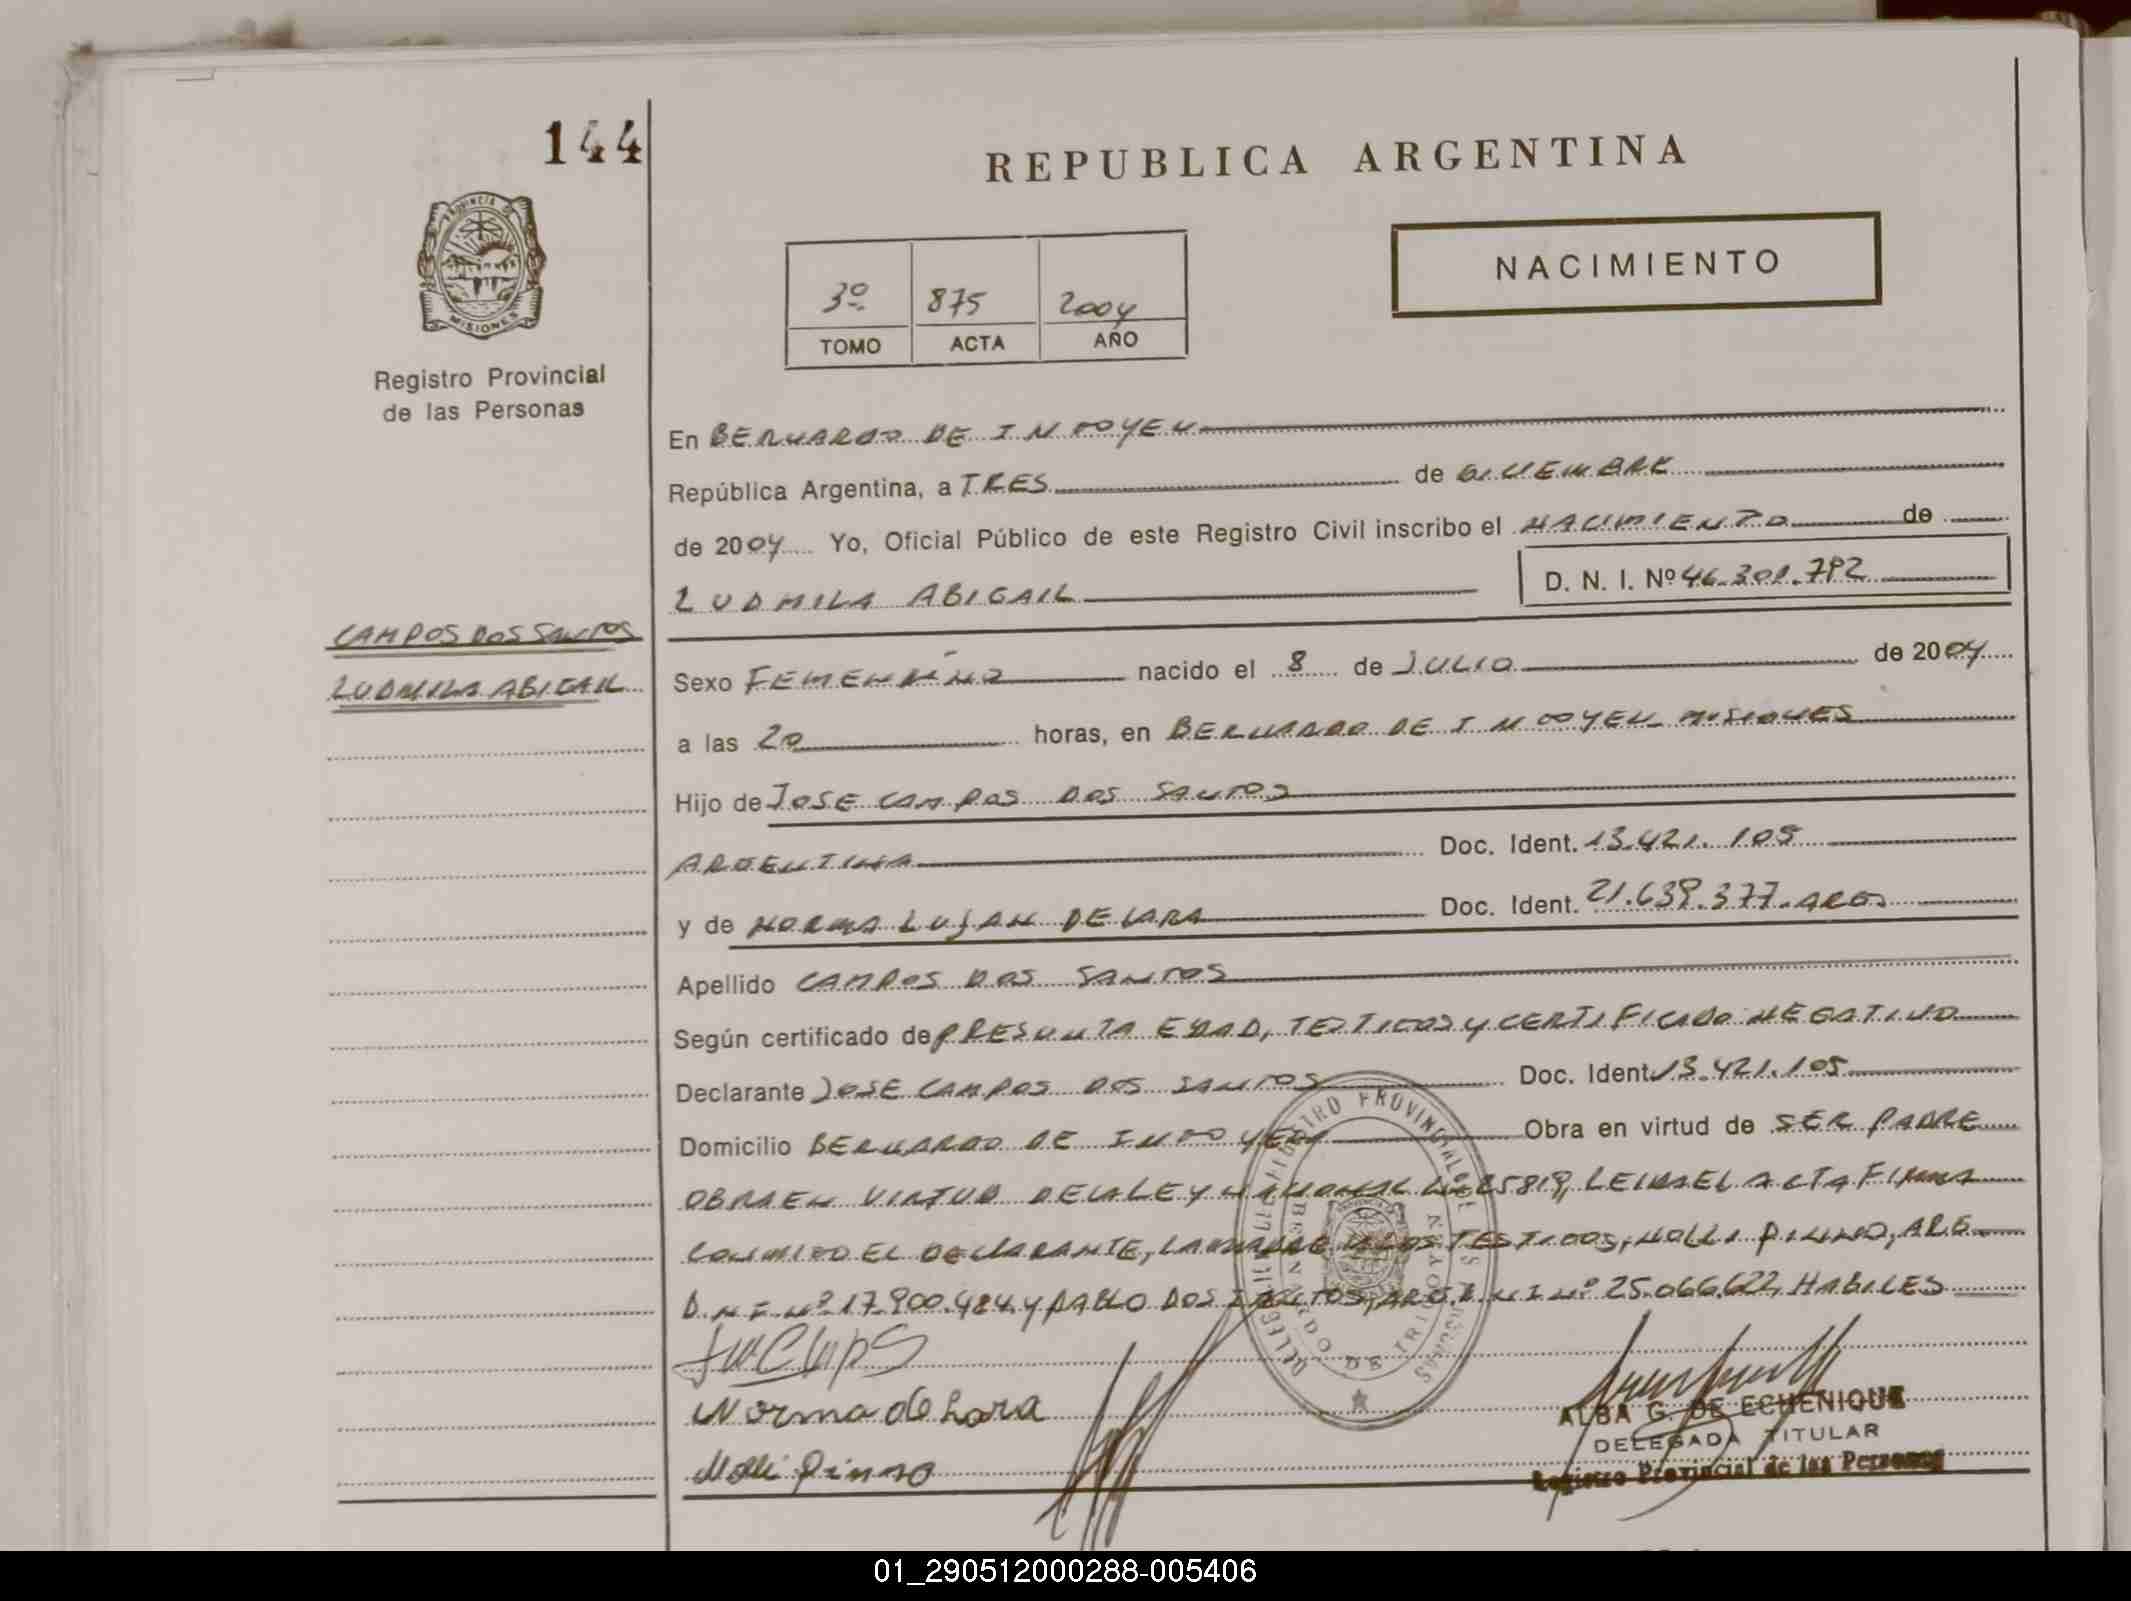 144
REPUBLICA ARGENTINA
PROVINCIA DE
MISIONES
NACIMIENTO
3º 875 2004
TOMO ACTA AÑO
Registro Provincial
de las Personas
En BERNARDO DE IRIGOYEN
República Argentina, a TRES de DICIEMBRE
de 2004 Yo, Oficial Público de este Registro Civil inscribo el NACIMIENTO de
LUDMILA ABIGAIL D. N. I. Nº 46.301.792
CAMPOS DOS SANTOS
LUDMILA ABIGAIL
Sexo FEMENINO nacido el 8 de JULIO de 2004
a las 20 horas, en BERNARDO DE IRIGOYEN MISIONES
Hijo de JOSE CAMPOS DOS SANTOS
ARGENTINA Doc. Ident. 13.421.105
y de NORMA LUJAN DE LARA Doc. Ident. 21.639.377 ARG
Apellido CAMPOS DOS SANTOS
Según certificado de PRESUNTA EDAD, TESTIGOS Y CERTIFICADO NEGATIVO
Declarante JOSE CAMPOS DOS SANTOS Doc. Ident. 13.421.105
Domicilio BERNARDO DE IRIGOYEN Obra en virtud de SER PADRE
OBRA EN VIRTUD DE LA LEY NACIONAL Nº 25819, LEIDA EL ACTA FIRMA
CONMIGO EL DECLARANTE, LA MADRE Y LOS TESTIGOS, NOLLI PINNO, ARG
D.N.I Nº 17.900.484 Y PABLO DOS SANTOS, ARG. D.N.I Nº 25.066.622 HABILES
Norma de Lara
Nolli Pinno
ALBA G. DE ECHENIQUE
DELEGADA TITULAR
Registro Provincial de las Personas
01_290512000288-005406